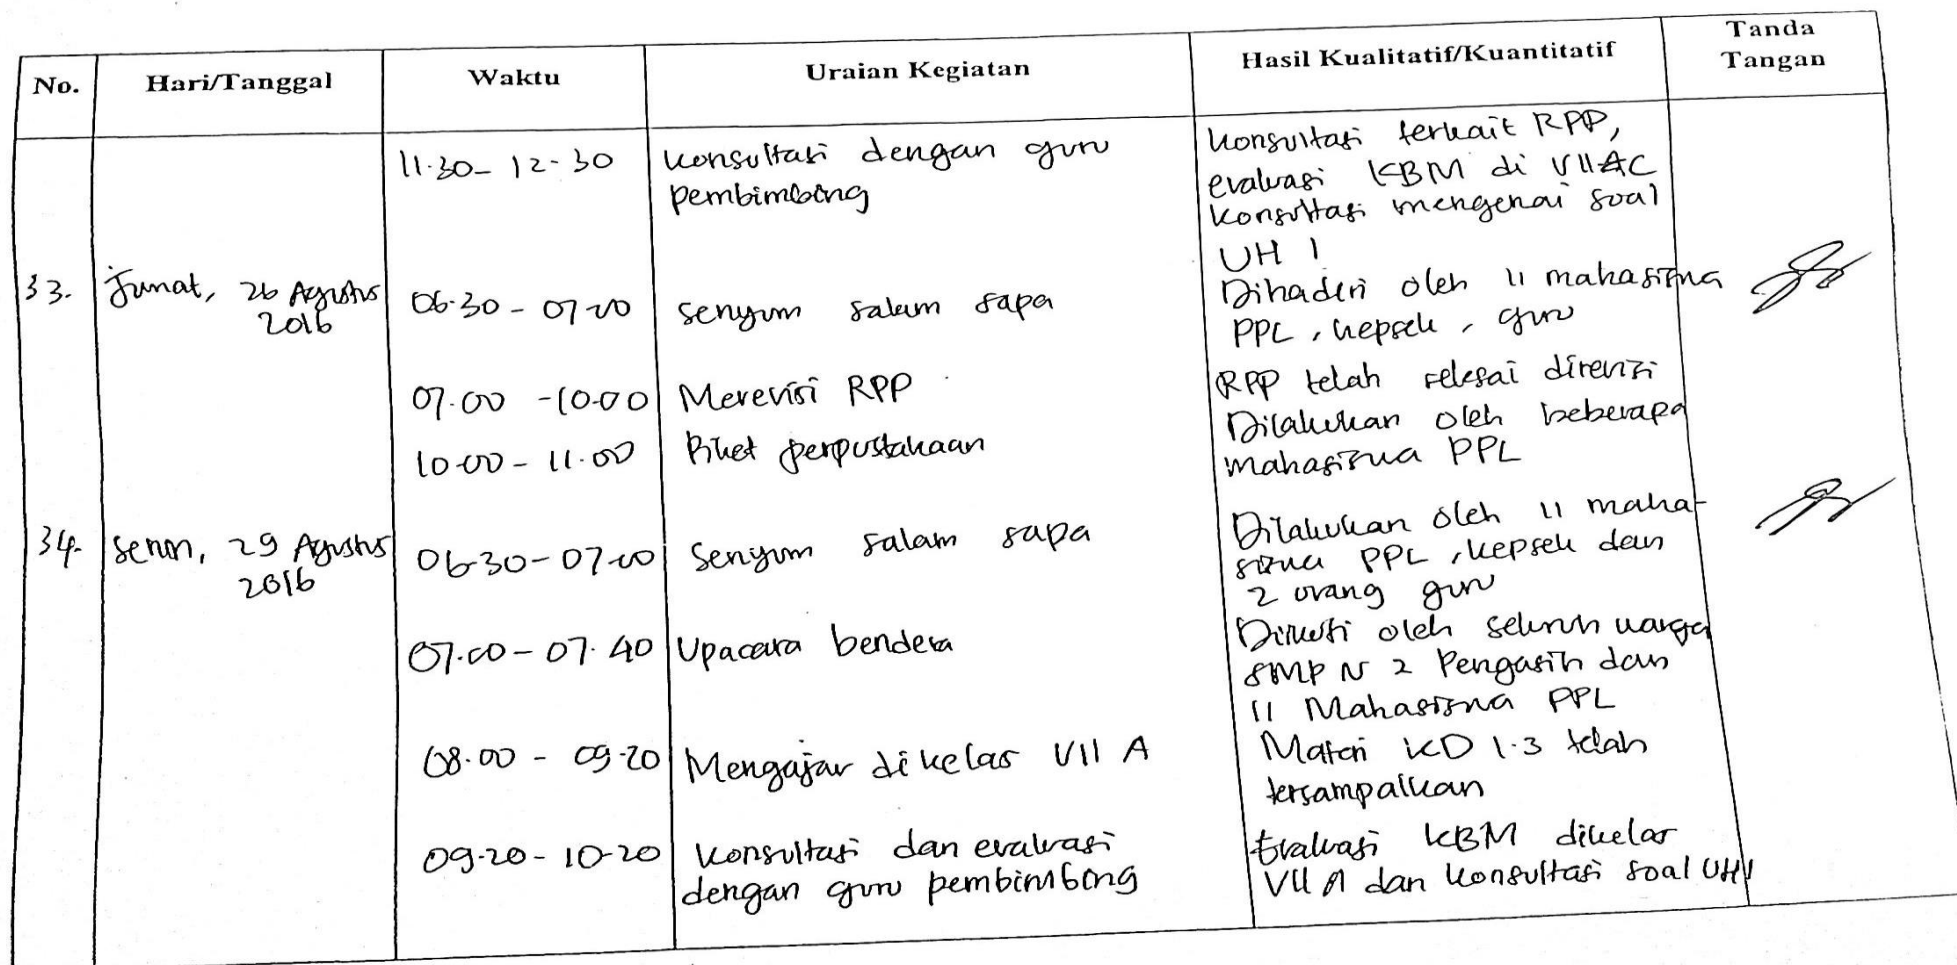 No. Hari/Tanggal Waktu Uraian Kegiatan Hasil Kualitatif/Kuantitatif Tanda Tangan
11.30 - 12.30 Konsultasi dengan guru pembimbing
Konsultasi terkait RPP,
evaluasi KBM di VII
Konsultasi mengenai soal
UH 1
33. Jumat, 26 Agustus 2016
06.30 - 07.00 Senyum salam sapa
Dihadiri oleh 11 mahasiswa
PPL, kepsek, guru
07.00 - 10.00 Merevisi RPP
RPP telah selesai direvisi
10.00 - 11.00 Piket perpustakaan
Dilakukan oleh beberapa
mahasiswa PPL
34. Senin, 29 Agustus 2016
06.30 - 07.00 Senyum salam sapa
Dilakukan oleh 11 maha-
siswa PPL, kepsek dan
2 orang guru
07.00 - 07.40 Upacara bendera
Diikuti oleh seluruh warga
SMP N 2 Pengasih dan
11 Mahasiswa PPL
08.00 - 09.20 Mengajar di kelas VII A
Materi KD 1.3 telah
tersampaikan
09.20 - 10.20 Konsultasi dan evaluasi
dengan guru pembimbing
Evaluasi KBM dikelas
VII A dan konsultasi soal UH 1